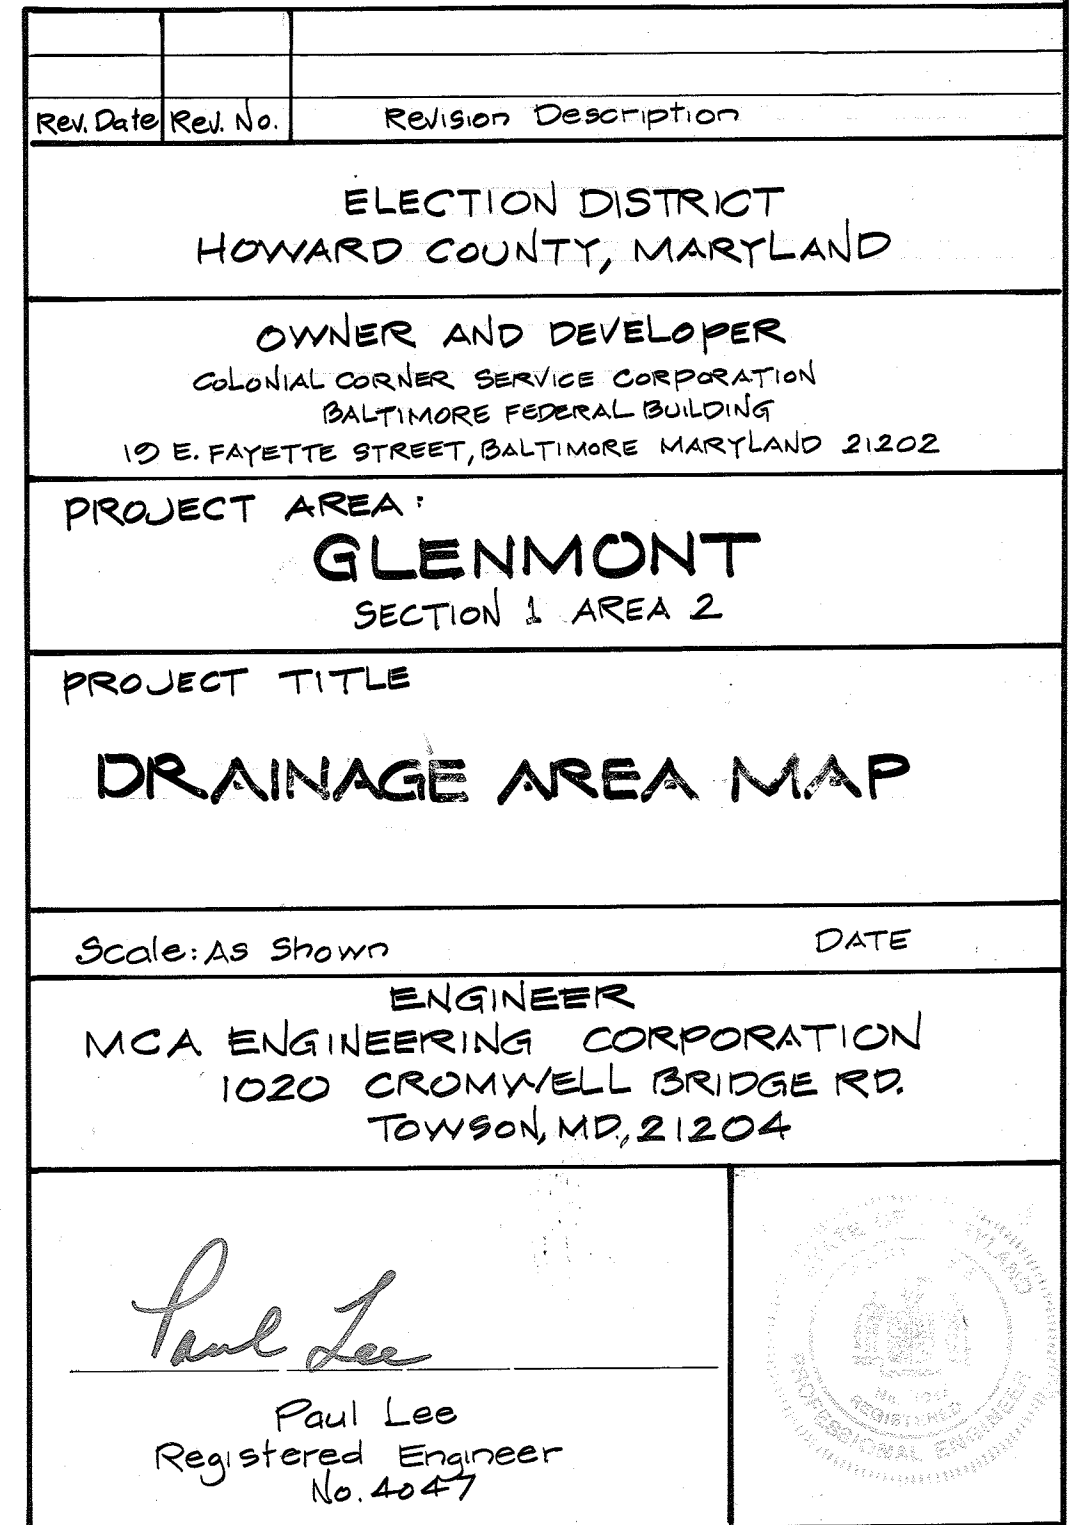 Rev. Date Rev. No. Revision Description
ELECTION DISTRICT
HOWARD COUNTY, MARYLAND
OWNER AND DEVELOPER
COLONIAL CORNER SERVICE CORPORATION
BALTIMORE FEDERAL BUILDING
19 E. FAYETTE STREET, BALTIMORE MARYLAND 21202
PROJECT AREA:
GLENMONT
SECTION 1 AREA 2
PROJECT TITLE
DRAINAGE AREA MAP
Scale: As Shown DATE
ENGINEER
MCA ENGINEERING CORPORATION
1020 CROMWELL BRIDGE RD.
TOWSON, MD., 21204
Paul Lee
Paul Lee
Registered Engineer
No. 4047
STATE OF
No.
REGISTERED
PROFESSIONAL ENGINEER